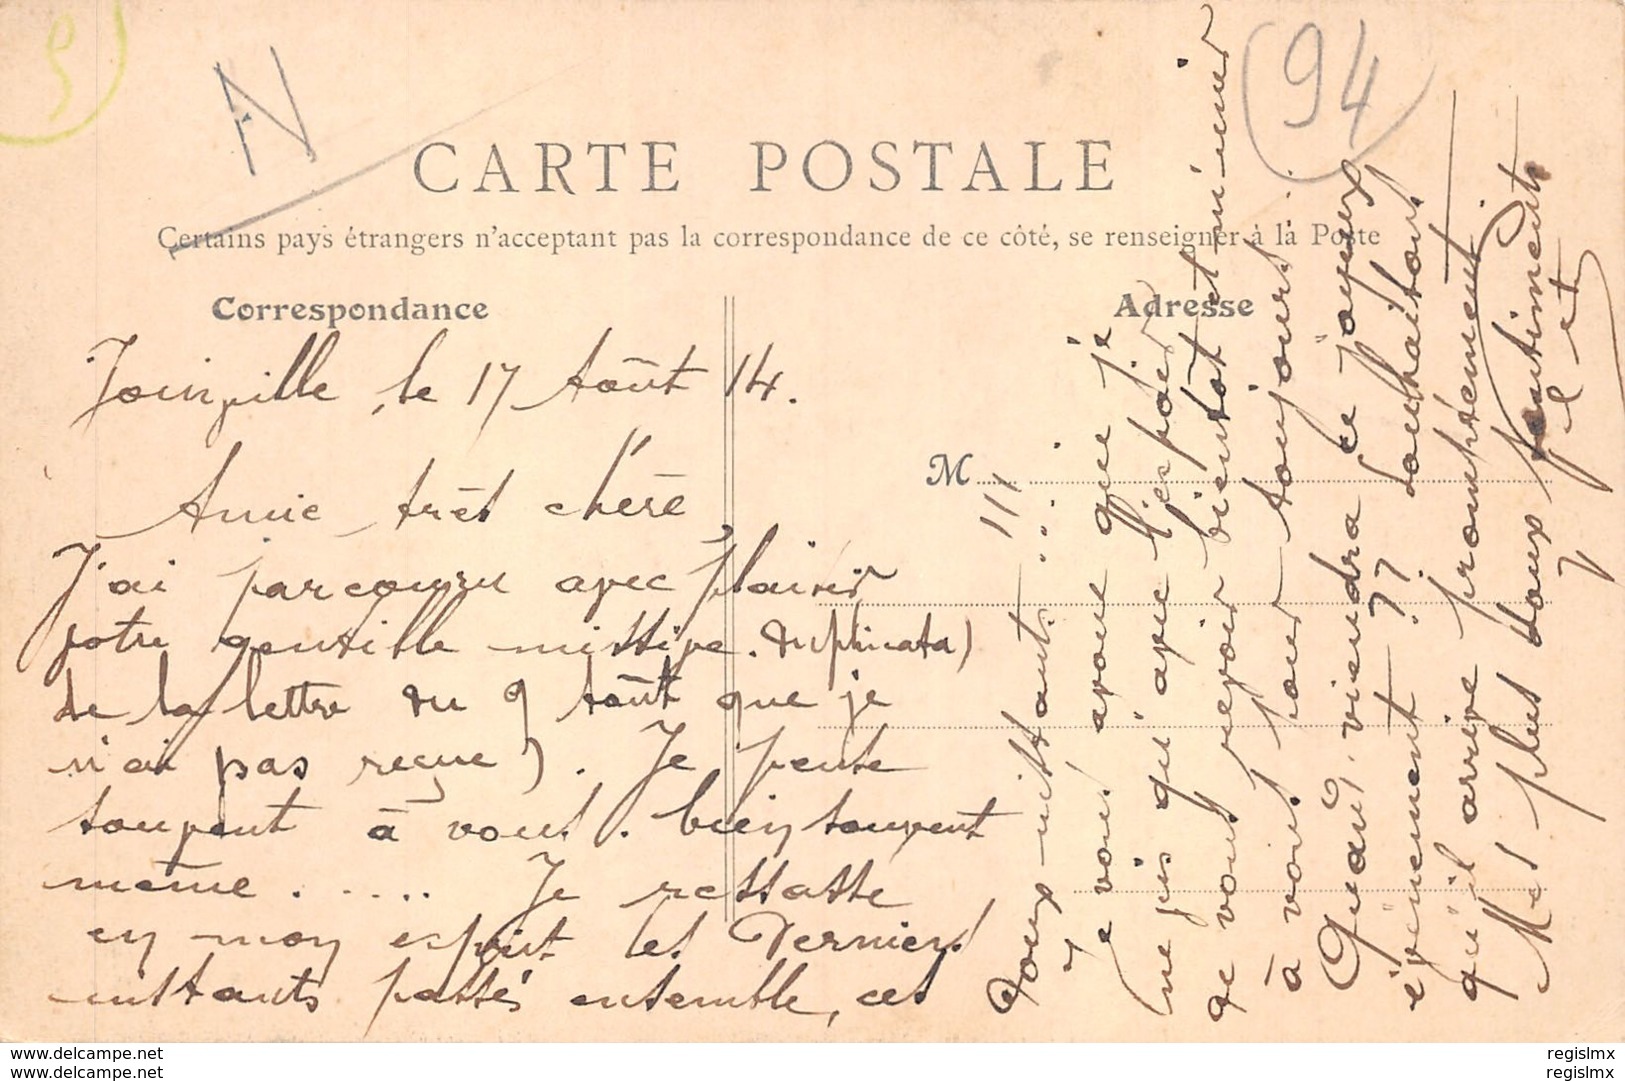 94
CARTE POSTALE
Certains pays étrangers n'acceptant pas la correspondance de ce côté, se renseigner à la Poste
Correspondance
Adresse
M
Joinville, le 17 Août 14.
Amie très chère,
J'ai parcouru avec plaisir
votre gentille missive. duplicata)
de la lettre du 9 Août que je
n'ai pas reçue). Je pense
souvent à vous. bien souvent
même . . . . . Je ressasse
en mon esprit les derniers
instants passés ensemble, ces
doux instants . . . !!!
Je vous avoue que je
ne vis qu'avec l'espoir
de vous revoir bientôt et m'unir
à vous pour toujours . . .
Quand viendra ce joyeux
évènement ?? Souhaitons
qu'il arrive promptement.
Mes plus doux sentiments
delcampe.net
delcampe.net
regislmx
regislmx